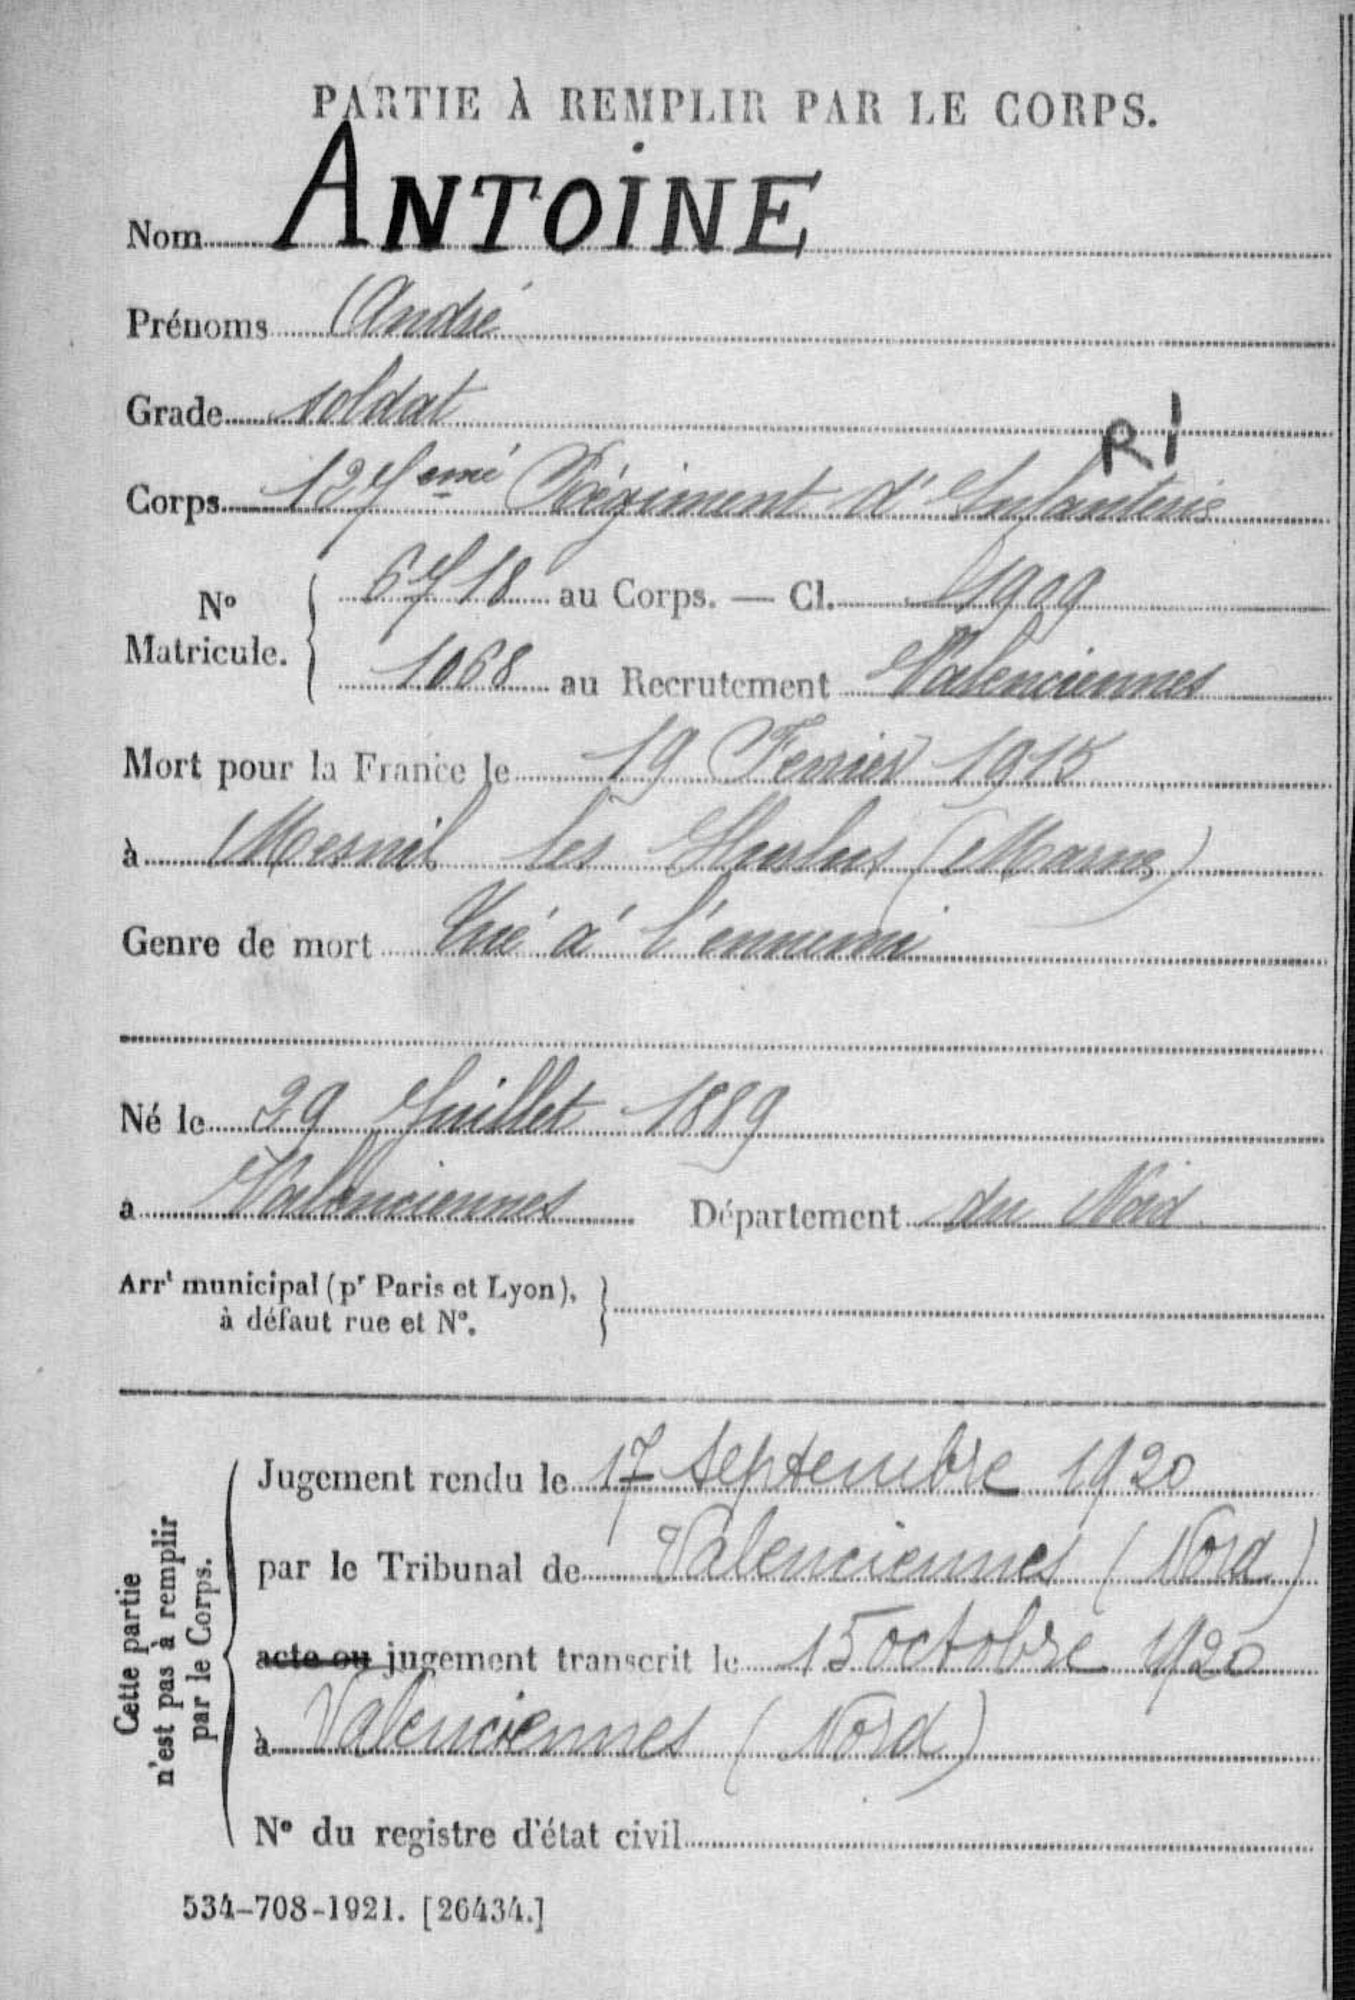 PARTIE À REMPLIR PAR LE CORPS.
Nom ANTOINE
Prénoms André
Grade soldat
RI
Corps 127eme Régiment d'Infanterie
N° Matricule.
6718 au Corps. — Cl. 1909
1068 au Recrutement Valenciennes
Mort pour la France le 19 Fevrier 1915
à Mesnil les Hurlus (Marne)
Genre de mort Tué à l'ennemi
Né le 29 Juillet 1889
à Valenciennes Département du Nord
Arrt municipal (pr Paris et Lyon),
à défaut rue et N°.
Cette partie
n'est pas à remplir
par le Corps.
Jugement rendu le 17 septembre 1920
par le Tribunal de Valenciennes (Nord)
acte ou jugement transcrit le 15 octobre 1920
à Valenciennes (Nord)
N° du registre d'état civil
534-708-1921. [26434.]